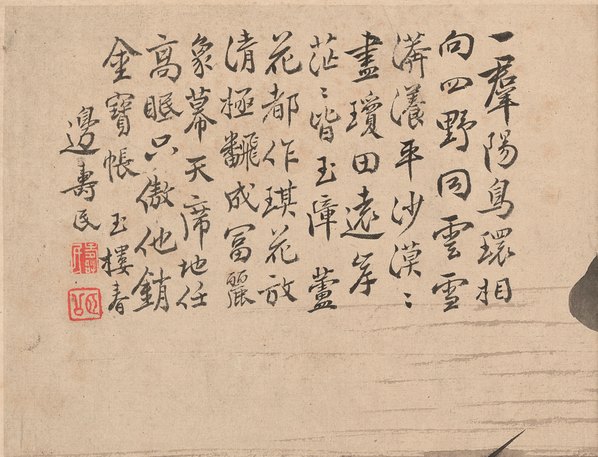 一羣陽鳥環相
向四野同雲雪
漭瀁平沙漠〻
盡瓊田遠岸
茫〻皆玉障 蘆
花都作琪花放
清極飜成富麗
象幕天席地任
高眠只傲他銷
金寶帳 玉樓春
邊壽民
壽民